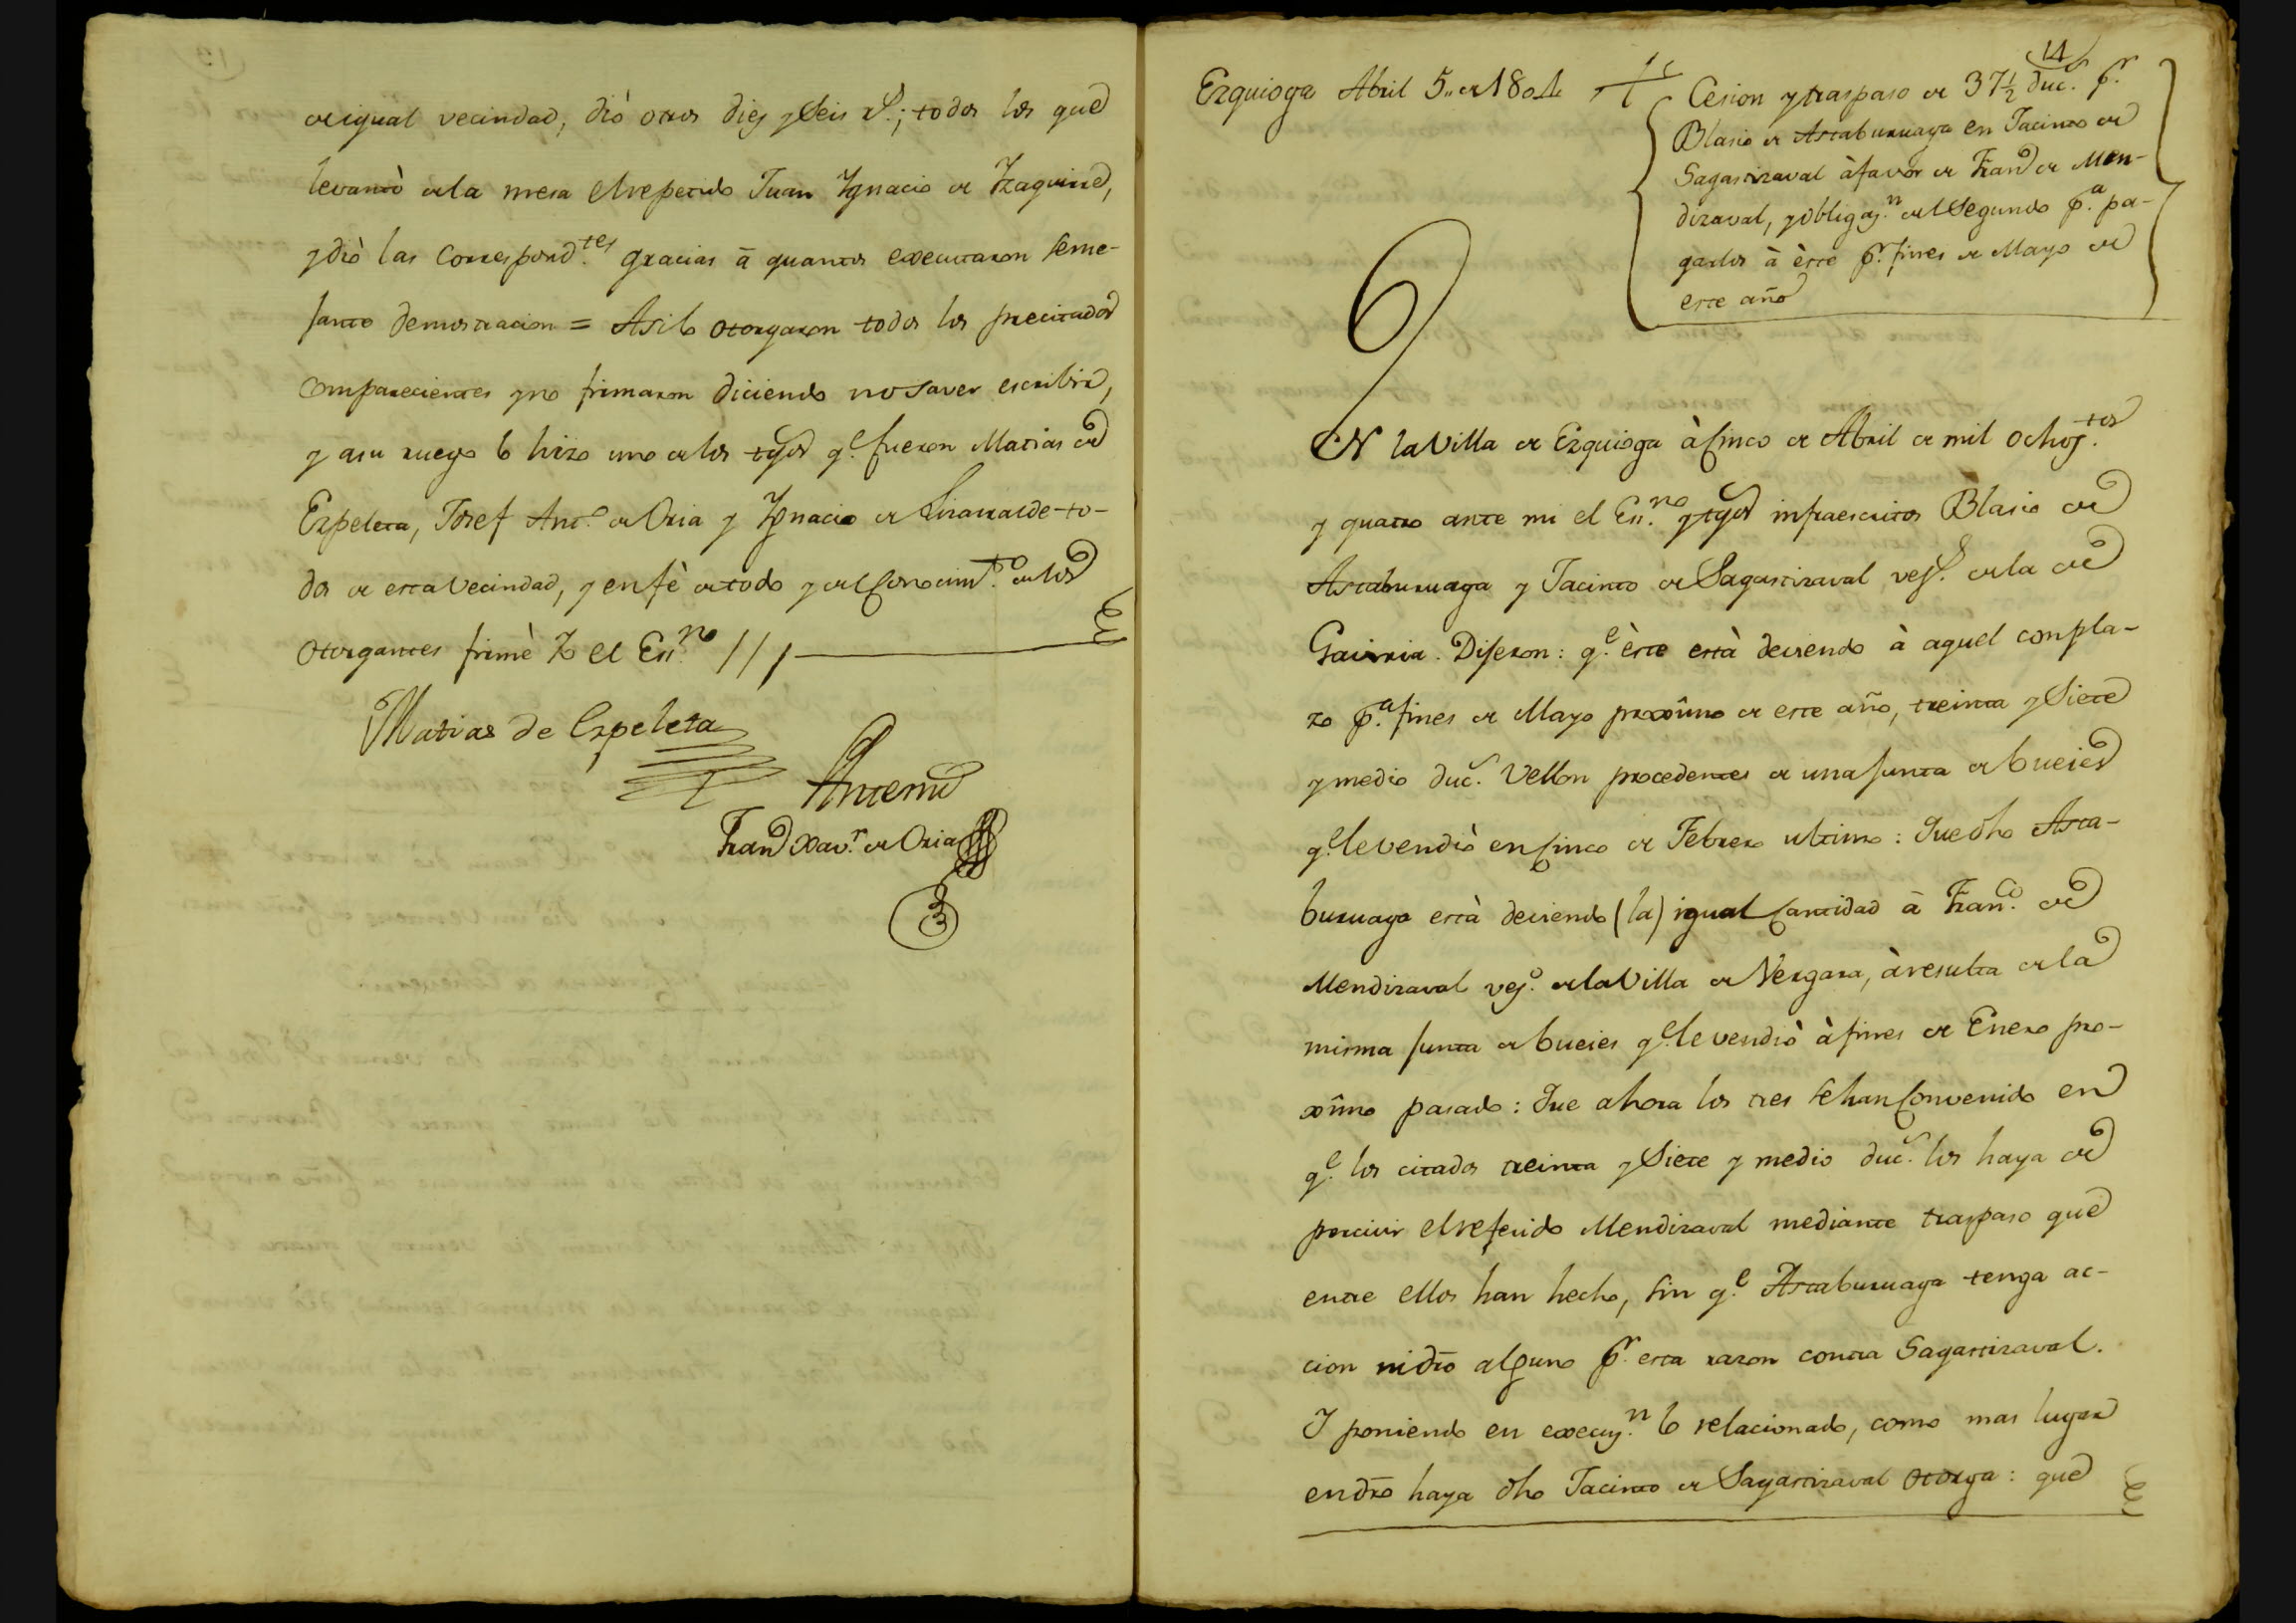 de igual vecindad, diò otros diez y Seis r.s; todos los que
levantò de la mesa el repetido Juan Ygnacio de Yzaguirre,
y diò las Correspond.tes gracias â quantos executaron seme-
jante demostracion = Asi lo otorgaron todos los precitados
comparecientes y no firmaron diciendo no saver escribir,
y a su ruego lo hizo uno de los tgos q.e fueron Matias de
Ezpeleta, Josef Ant.o de Oria y Ygnacio de Lizarralde to-
dos de esta Vecindad, y en fè de todo y del Conocim.to de los
otorgantes firmè Yo el Ess.no //
Matias de Ezpeleta
Antemi
Fran.co Xav.r de Oria
3
14
Ezquioga Abril 5,, de 1804
Cesion y traspaso de 37½ duc.s p.r
Blasio de Ascaburuaga en Jacinto de
Sagastizaval à favor de Fran.co de Men-
dizaval, y obligaz.n del Segundo p.a pa-
garlos à èste p.r fines de Mayo de
este año
EN la Villa de Ezquioga à Cinco de Abril de mil ochoz.tos
y quatro ante mi el Ess.no y tgos infraescritos Blasio de
Ascaburuaga y Jacinto de Sagastizaval vez.s de la de
Gaviria. Dijeron: q.e èste està deviendo à aquel con pla-
zo p.a fines de Mayo proximo de este año, treinta y Siete
y medio duc.s Vellon procedentes de una junta de bueies
q.e le vendiò en Cinco de Febrero ultimo: Que dho Asca-
buruaga està deviendo (la) igual Cantidad â Fran.co de
Mendizaval vez.o de la Villa de Vergara, à resulta de la
misma junta de bueies q.e le vendiò à fines de Enero pro-
ximo pasado: Que ahora los tres se han Convenido en
q.e los citados treinta y Siete y medio duc.s los haya de
percivir el referido Mendizaval mediante traspaso que
entre ellos han hecho, sin q.e Ascaburuaga tenga ac-
cion ni dro alguno p.r esta razon contra Sagastizaval.
Y poniendo en execuz.n lo relacionado, como mas lugar
en dro haya dho Jacinto de Sagastizaval otorga: que